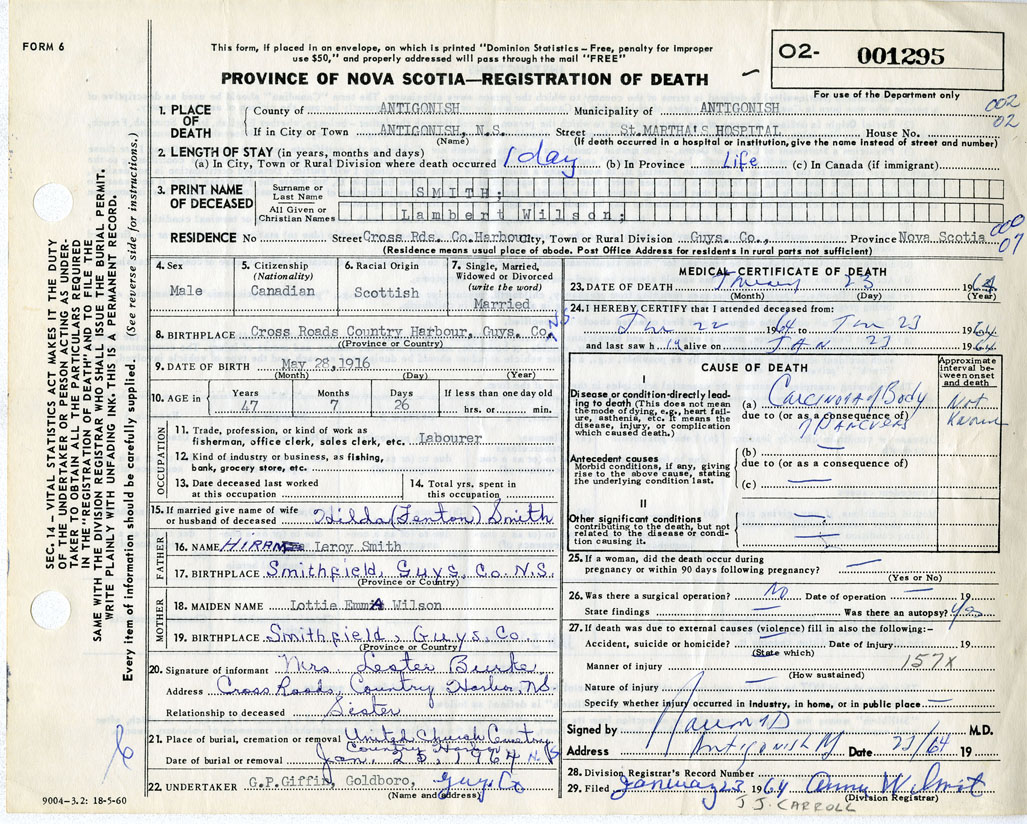 FORM 6
This form, if placed in an envelope, on which is printed "Dominion Statistics – Free, penalty for improper
use $50," and properly addressed will pass through the mail "FREE"
PROVINCE OF NOVA SCOTIA—REGISTRATION OF DEATH
O2- 001295
For use of the Department only
002
02
1. PLACE OF DEATH
County of ANTIGONISH Municipality of ANTIGONISH
If in City or Town ANTIGONISH, N.S. Street St.MARTHA'S HOSPITAL House No.
(Name) (If death occurred in a hospital or institution, give the name instead of street and number)
2. LENGTH OF STAY (in years, months and days)
(a) In City, Town or Rural Division where death occurred 1 day (b) In Province Life (c) In Canada (if immigrant)
3. PRINT NAME OF DECEASED
Surname or Last Name SMITH;
All Given or Christian Names Lambert Wilson;
000
07
RESIDENCE No Street Cross Rds. Co.Harbour City, Town or Rural Division Guys. Co., Province Nova Scotia
(Residence means usual place of abode. Post Office Address for residents in rural parts not sufficient)
4. Sex Male
5. Citizenship (Nationality) Canadian
6. Racial Origin Scottish
7. Single, Married, Widowed or Divorced (write the word) Married
8. BIRTHPLACE Cross Roads Country Harbour, Guys. Co. N.S.
((Province or Country)
9. DATE OF BIRTH May 28,1916
(Month) (Day) (Year)
10. AGE in Years 47 Months 7 Days 26 If less than one day old hrs. or min.
OCCUPATION
11. Trade, profession, or kind of work as
fisherman, office clerk, sales clerk, etc. Labourer
12. Kind of industry or business, as fishing,
bank, grocery store, etc.
13. Date deceased last worked
at this occupation
14. Total yrs. spent in
this occupation
15. If married give name of wife
or husband of deceased Hilda (Fenton) Smith
FATHER
16. NAME HIRAM Leroy Smith
17. BIRTHPLACE Smithfield, Guys, Co N.S.
(Province or Country)
MOTHER
18. MAIDEN NAME Lottie EmmA Wilson
19. BIRTHPLACE Smithfield, Guys Co.
(Province or Country)
20. Signature of informant Mrs. Lester Burke
Address Cross Roads, Country Harbor, N.S.
Relationship to deceased Sister
21. Place of burial, cremation or removal United Church Cemetry
Country Harbor
Date of burial or removal Jan. 25, 1964 N.S.
22. UNDERTAKER G.P.Giffin, Goldboro, Guys Co
(Name and address)
9004-3.2: 18-5-60
MEDICAL CERTIFICATE OF DEATH
23. DATE OF DEATH January 23 1964
(Month) (Day) (Year)
24. I HEREBY CERTIFY that I attended deceased from:
Jan 22 1964 to Jan 23 1964
and last saw h im alive on JAN 23 1964
CAUSE OF DEATH
Approximate interval between onset and death
I
Disease or condition directly leading to death (This does not mean the mode of dying, e.g., heart failure, asthenia, etc. It means the disease, injury, or complication which caused death.)
(a) Carcinoma of Body
due to (or as a consequence of)
of PANCREAS
Not Known
Antecedent causes
Morbid conditions, if any, giving rise to the above cause, stating the underlying condition last.
(b) —
due to (or as a consequence of)
(c) —
II
Other significant conditions
contributing to the death, but not related to the disease or condition causing it.
25. If a woman, did the death occur during
pregnancy or within 90 days following pregnancy? —
(Yes or No)
26. Was there a surgical operation? No Date of operation — 19
State findings — Was there an autopsy? Yes
27. If death was due to external causes (violence) fill in also the following:—
Accident, suicide or homicide? — Date of injury 19
(State which)
Manner of injury — 157X
(How sustained)
Nature of injury —
Specify whether injury occurred in Industry, in home, or in public place —
Signed by M.D.
Address Antigonish Date 23/64 19
28. Division Registrar's Record Number
29. Filed January 23 1964
(Division Registrar)
J J. CARROLL
SEC. 14 – VITAL STATISTICS ACT MAKES IT THE DUTY
OF THE UNDERTAKER OR PERSON ACTING AS UNDER-
TAKER TO OBTAIN ALL THE PARTICULARS REQUIRED
IN THE "REGISTRATION OF DEATH" AND TO FILE THE
SAME WITH THE DIVISION REGISTRAR WHO SHALL ISSUE THE BURIAL PERMIT.
WRITE PLAINLY WITH UNFADING INK. THIS IS A PERMANENT RECORD.
Every item of information should be carefully supplied. (See reverse side for instructions.)